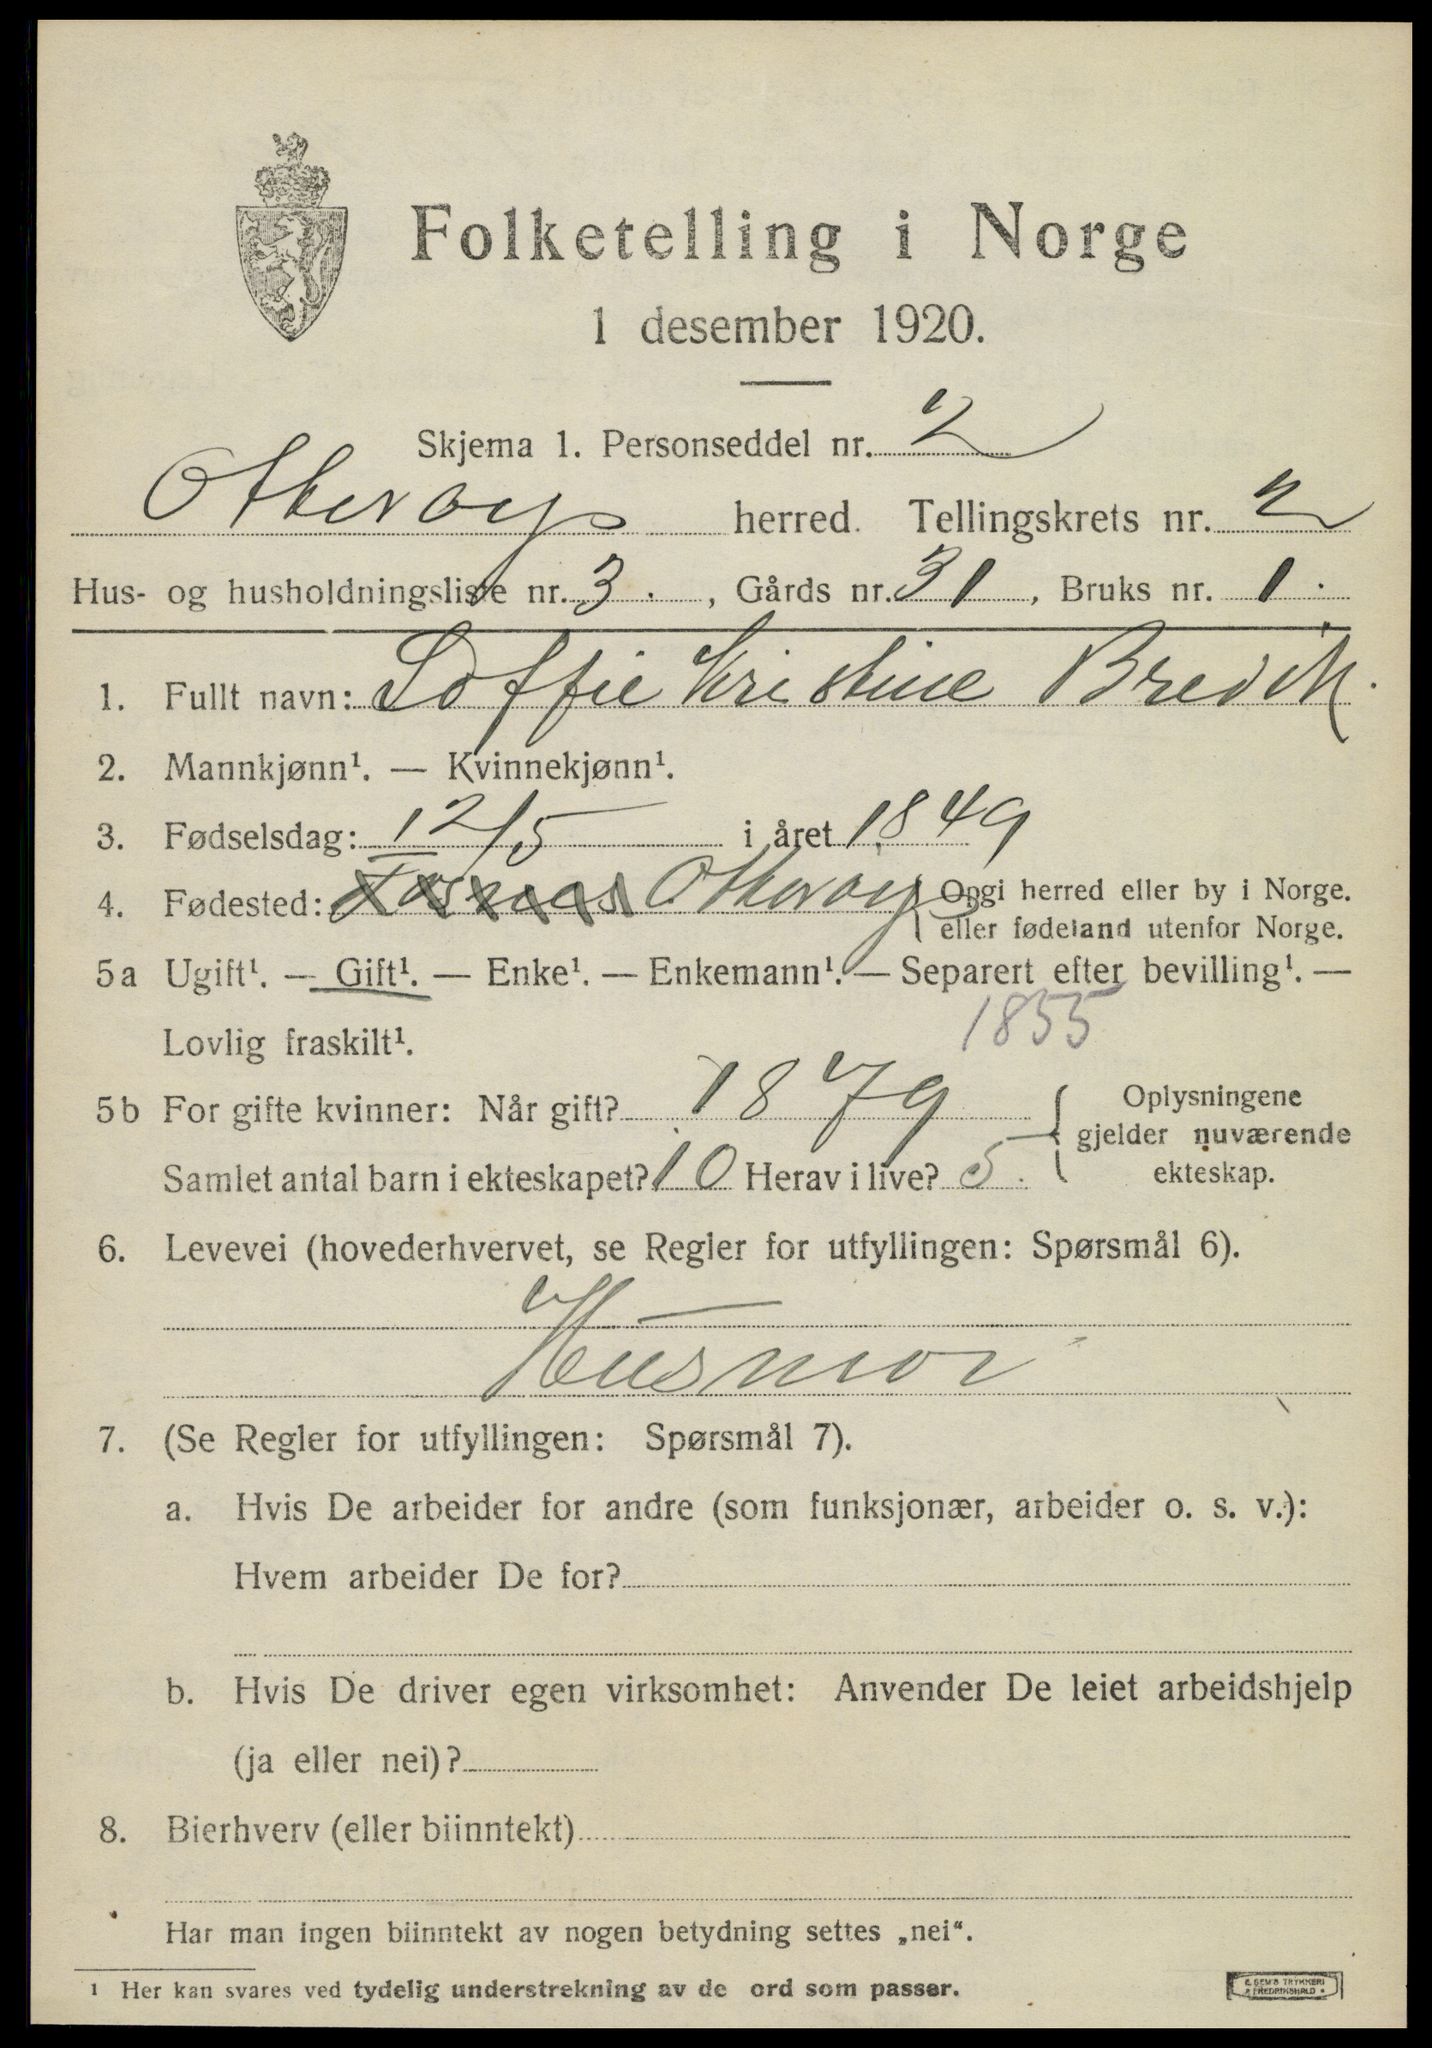 Folketelling i Norge
1 desember 1920.
Skjema 1. Personseddel nr. 2
Otterøy herred. Tellingskrets nr. 2
Hus- og husholdningsliste nr. 3. , Gårds nr. 31 , Bruks nr. 1.
1. Fullt navn: Soffie Kristine Brevik.
2. Mannkjønn¹. — Kvinnekjønn¹.
3. Fødselsdag: 12/5 i året 1849
4. Fødested: Fosnæs Otterøy Opgi herred eller by i Norge.
eller fødeland utenfor Norge.
5a Ugift¹. — Gift¹. — Enke¹. — Enkemann¹. — Separert efter bevilling¹. —
Lovlig fraskilt¹.
1855
5b For gifte kvinner: Når gift? 1879 Oplysningene
gjelder nuværende
Samlet antal barn i ekteskapet? 10 Herav i live? 5. ekteskap.
6. Levevei (hovederhvervet, se Regler for utfyllingen: Spørsmål 6).
Husmor
7. (Se Regler for utfyllingen: Spørsmål 7).
a. Hvis De arbeider for andre (som funksjonær, arbeider o. s. v.):
Hvem arbeider De for?
b. Hvis De driver egen virksomhet: Anvender De leiet arbeidshjelp
(ja eller nei)?
8. Bierhverv (eller biinntekt)
Har man ingen biinntekt av nogen betydning settes „nei“.
1 Her kan svares ved tydelig understrekning av de ord som passer.
E. SEM'S TRYKKERI
FREDRIKSHALD